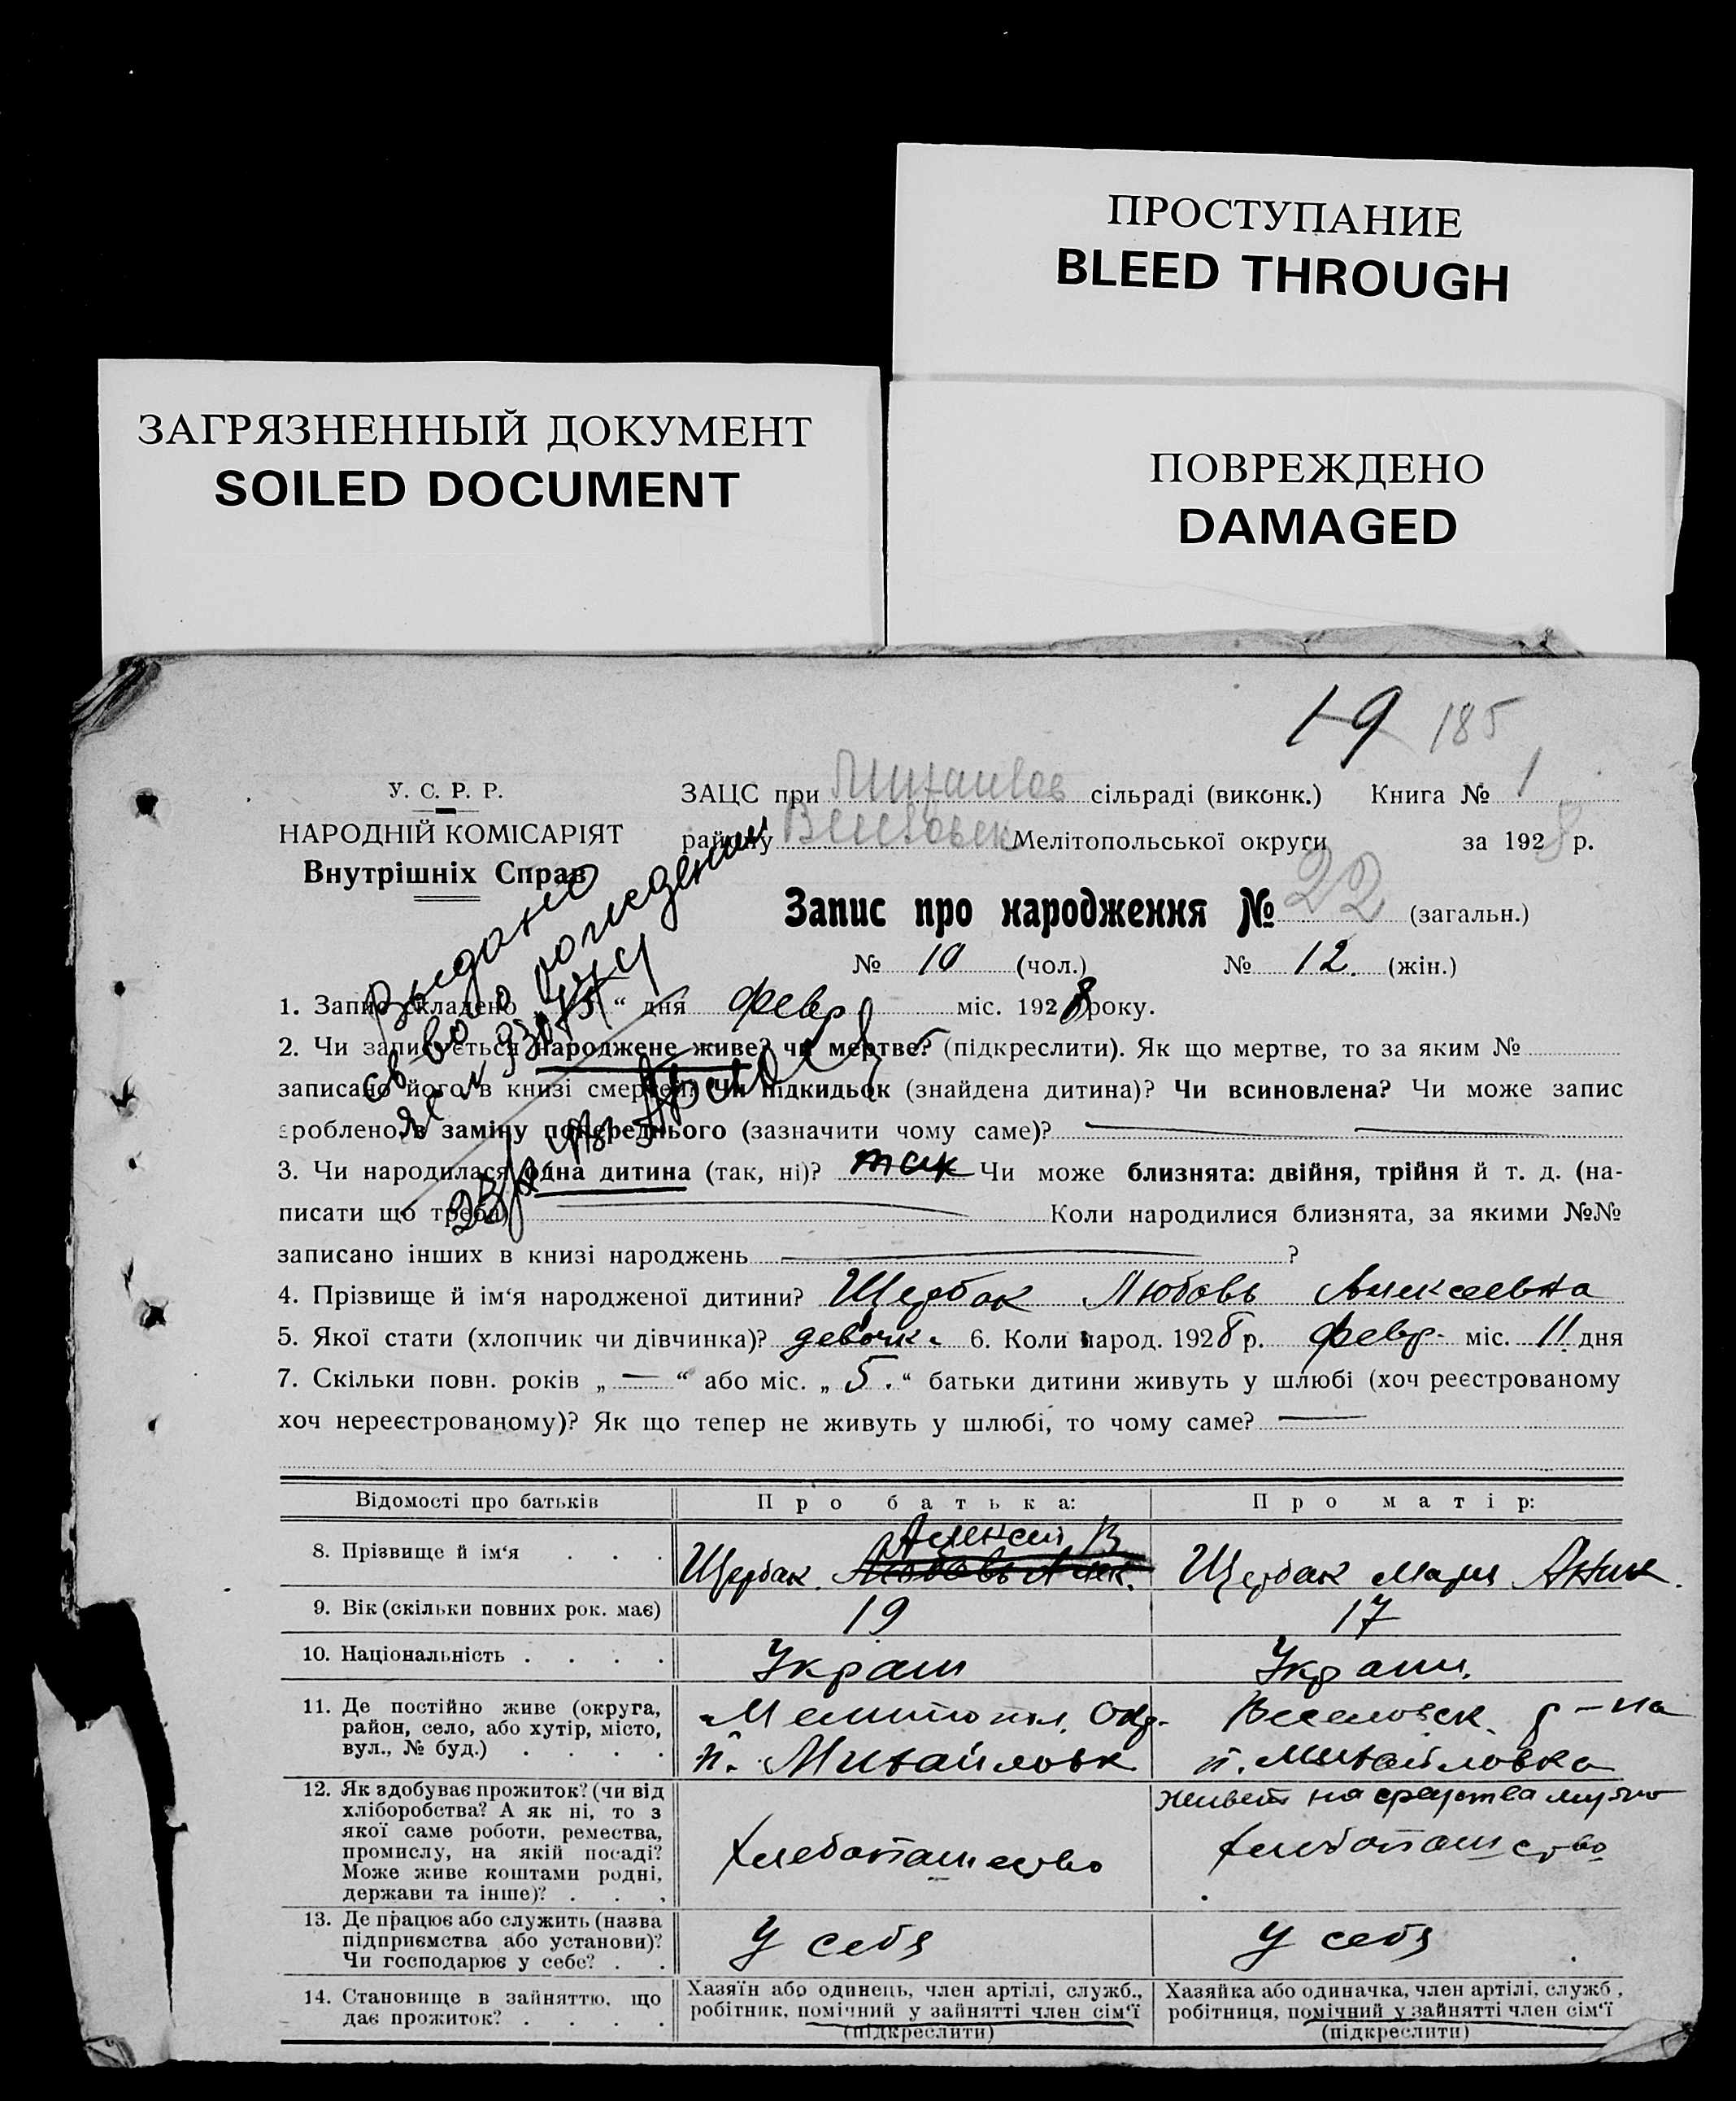 ПРОСТУПАНИЕ
BLEED THROUGH
ЗАГРЯЗНЕННЫЙ ДОКУМЕНТ
SOILED DOCUMENT
ПОВРЕЖДЕНО
DAMAGED
19 185
У. С. Р. Р.
НАРОДНІЙ КОМІСАРІЯТ
Внутрішніх Справ
ЗАЦС при Михайлов сільраді (виконк.) Книга № 1
району Веселовск Мелітопольської округи за 1928 р.
Запис про народження № 22 (загальн.)
№ 10 (чол.) № 12. (жін.)
Выдано
св-во о рождении
1. Запис складено " " дня февр міс. 1928 року.
2. Чи записується народжене живе? чи мертве? (підкреслити). Як що мертве, то за яким №
записано його в книзі смертей? Чи підкидьок (знайдена дитина)? Чи всиновлена? Чи може запис
зроблено в заміну попереднього (зазначити чому саме)?
3. Чи народилася одна дитина (так, ні)? так Чи може близнята: двійня, трійня й т. д. (на-
писати що треба) Коли народилися близнята, за якими №№
записано інших в книзі народжень ?
4. Прізвище й ім'я народженої дитини? Щербак Любовь Алексеевна
5. Якої стати (хлопчик чи дівчинка)? девочк. 6. Коли народ. 1928 р. февр. міс. 11 дня
7. Скільки повн. років „ — “ або міс. „ 5. “ батьки дитини живуть у шлюбі (хоч реєстрованому
хоч нереєстрованому)? Як що тепер не живуть у шлюбі, то чому саме? —
Відомості про батьків Про батька: Про матір:
Алексей В
8. Прізвище й ім'я . . . Щербак Любовь Алек. Щербак Мария Аким.
9. Вік (скільки повних рок. має) 19 17
10. Національність . . . . Украин Украин.
11. Де постійно живе (округа, район, село, або хутір, місто, вул., № буд.) . . . .
Мелитопол. Окр.
п. Михайловк
Веселовск. р-на
п. Михайловка
12. Як здобуває прожиток? (чи від хліборобства? А як ні, то з якої саме роботи, ремества, промислу, на якій посаді? Може живе коштами родні, держави та інше)? . . .
Хлебопашество
живет на средства мужа
хлебопашество
13. Де працює або служить (назва підприємства або установи)? Чи господарює у себе? . .
У себя У себя
14. Становище в зайняттю, що дає прожиток? . . . .
Хазяїн або одинець, член артілі, служб., робітник, помічний у зайнятті член сім'ї (підкреслити)
Хазяйка або одиначка, член артілі, служб., робітниця, помічний у зайнятті член сім'ї (підкреслити)